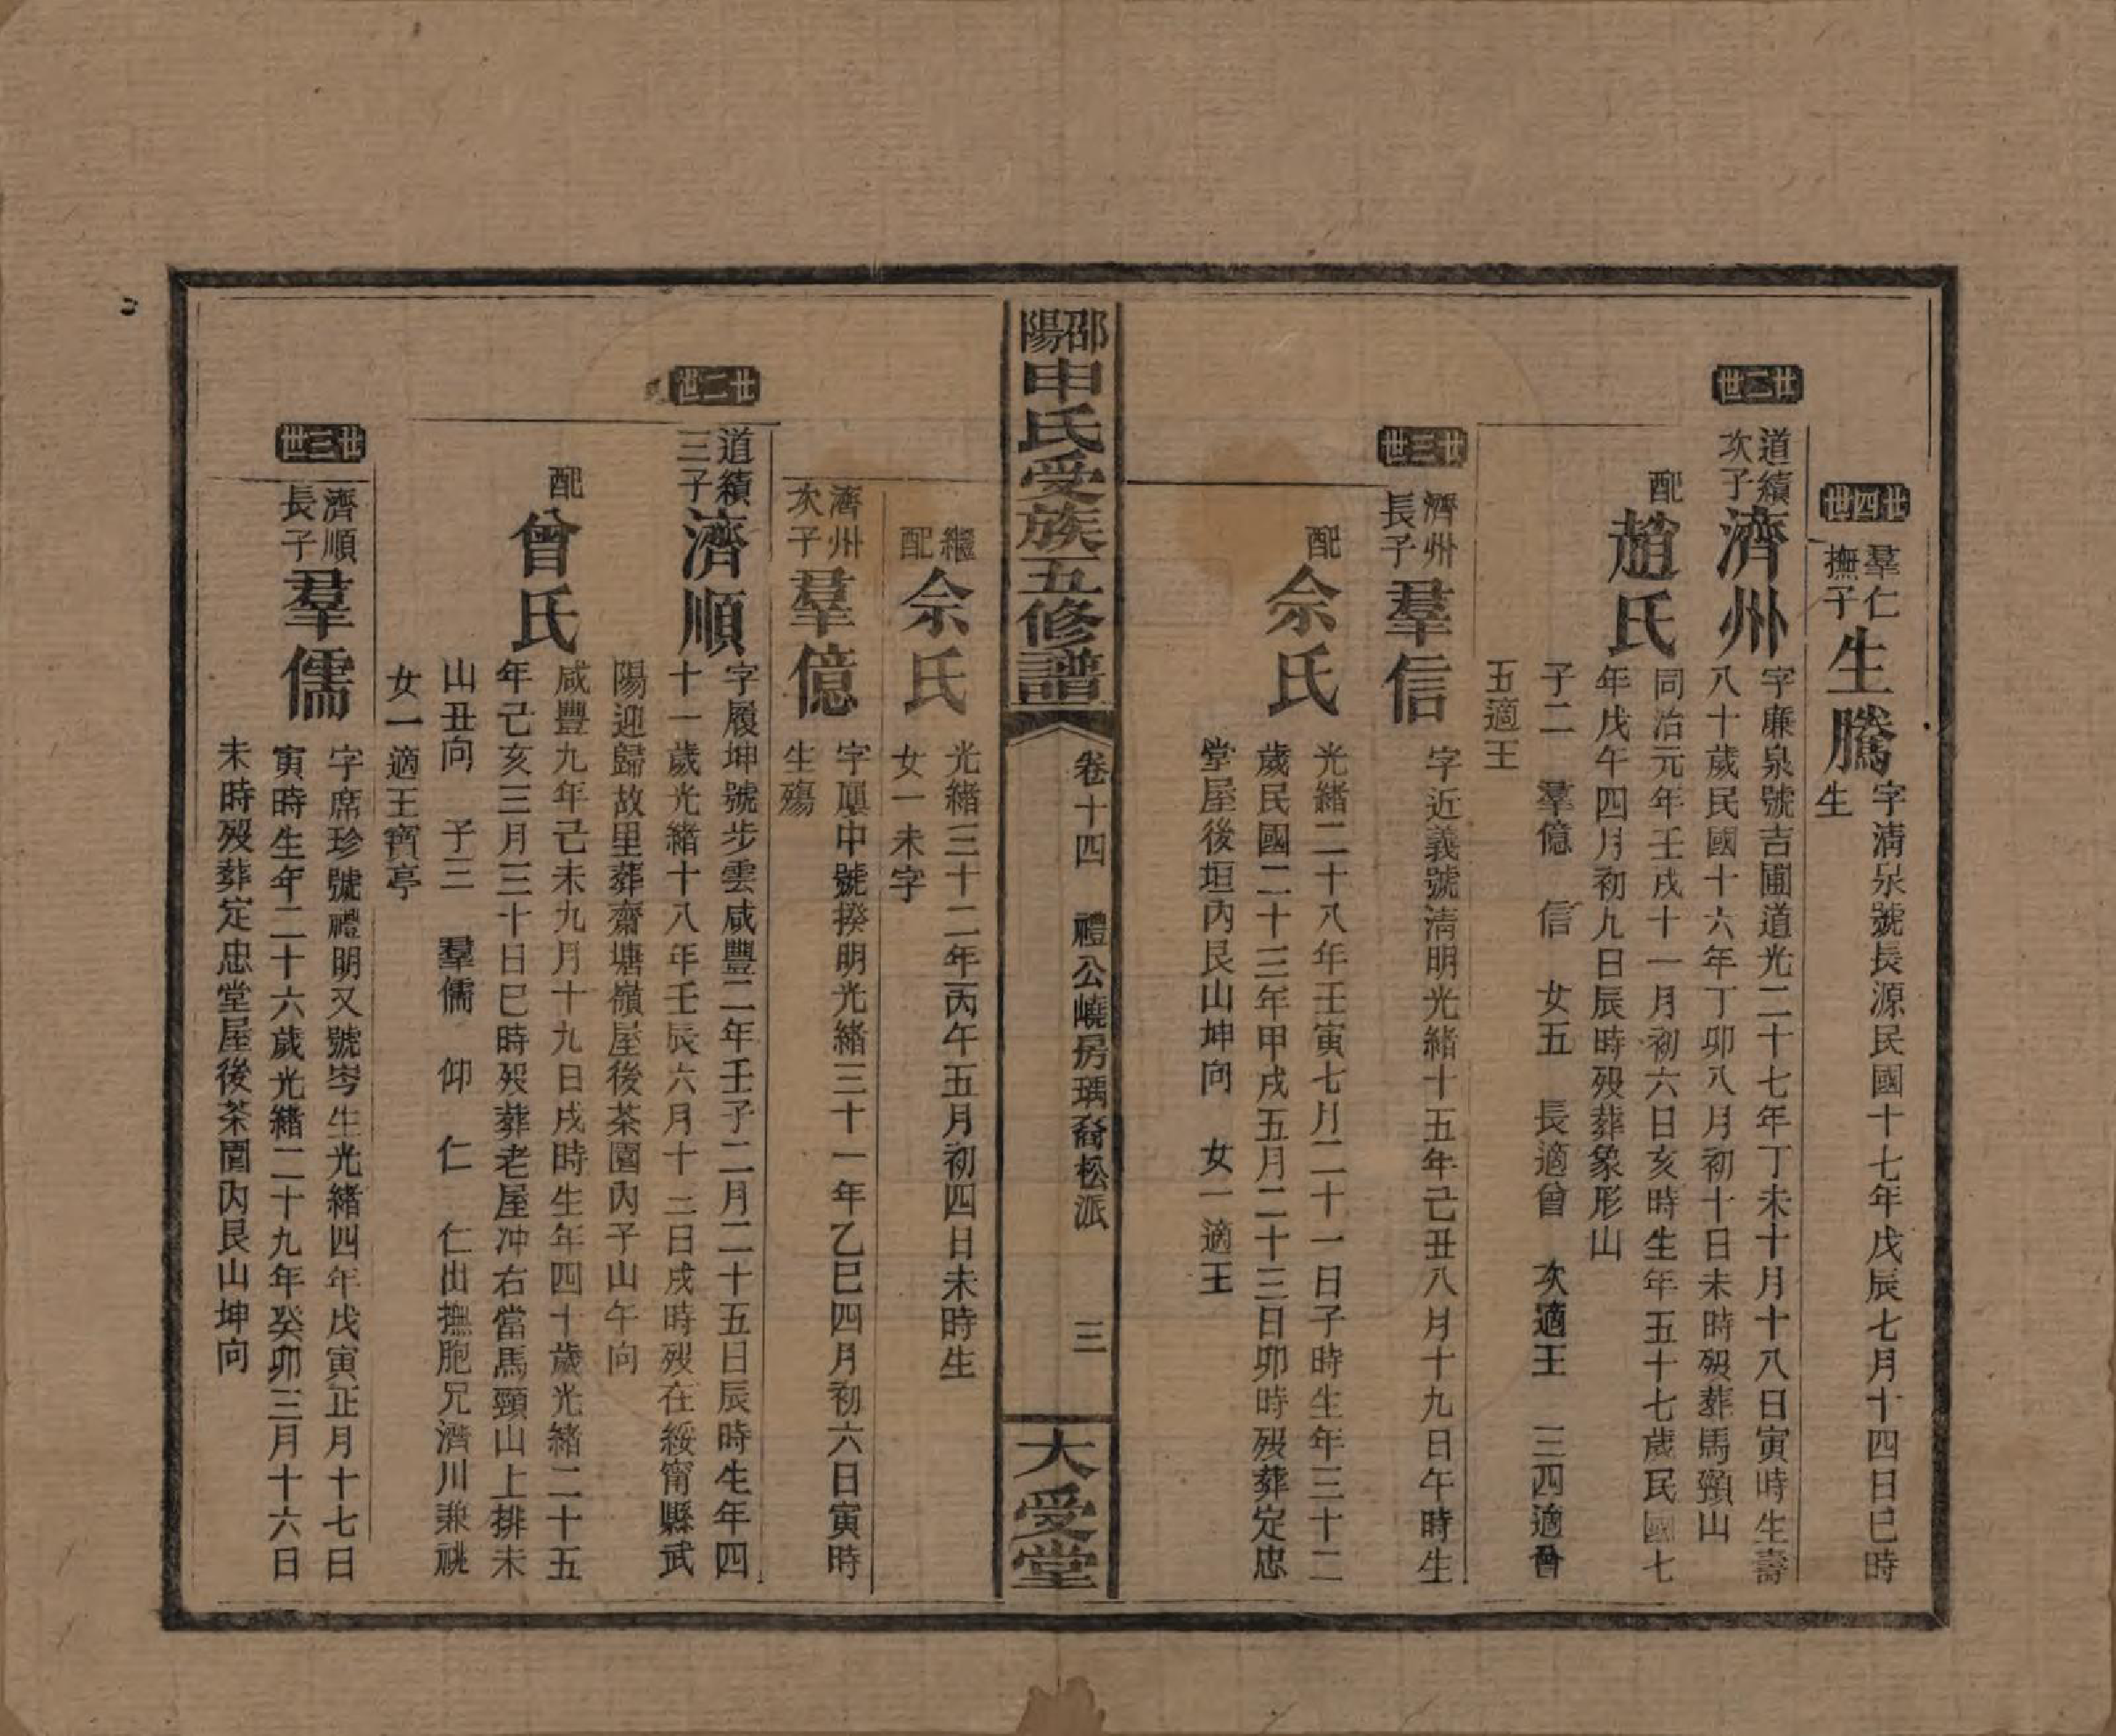 廿四世
羣仁
撫子
生騰
字清泉號長源民國十七年戊辰七月十四日巳時
生
廿二世
道續
次子
濟州
字廉泉號吉圃道光二十七年丁未十月十八日寅時生壽
八十歲民國十六年丁卯八月初十日未時歿葬馬頸山
配
趙氏
同治元年壬戌十一月初六日亥時生年五十七歲民國七
年戊午四月初九日辰時歿葬象形山
子二 羣億 信 女五 長適曾 次適王 三四適曾
五適王
廿三世
濟州
長子
羣信
字近義號清明光緒十五年己丑八月十九日午時生
配
佘氏
光緒二十八年壬寅七月二十一日子時生年三十二
歲民國二十三年甲戌五月二十三日卯時歿葬定忠
堂屋後垣內艮山坤向 女一適王
邵陽申氏受族五修譜
卷十四 禮公嶢房瑀裔松派 三
大受堂
繼
配
佘氏
光緒三十二年丙午五月初四日未時生
女一未字
濟州
次子
羣億
字順中號揆明光緒三十一年乙巳四月初六日寅時
生殤
廿二世
道續
三子
濟順
字履坤號步雲咸豐二年壬子二月二十五日辰時生年四
十一歲光緒十八年壬辰六月十二日戌時歿在綏甯縣武
陽迎歸故里葬齋塘嶺屋後茶園內子山午向
配
曾氏
咸豐九年己未九月十九日戌時生年四十歲光緒二十五
年己亥三月三十日巳時歿葬老屋冲右當馬頸山上排未
山丑向 子三 羣儒 仰 仁 仁出撫胞兄濟川兼祧
女一適王寶亭
廿三世
濟順
長子
羣儒
字席珍號禮明又號岑生光緒四年戊寅正月十七日
寅時生年二十六歲光緒二十九年癸卯三月十六日
未時歿葬定忠堂屋後茶園內艮山坤向